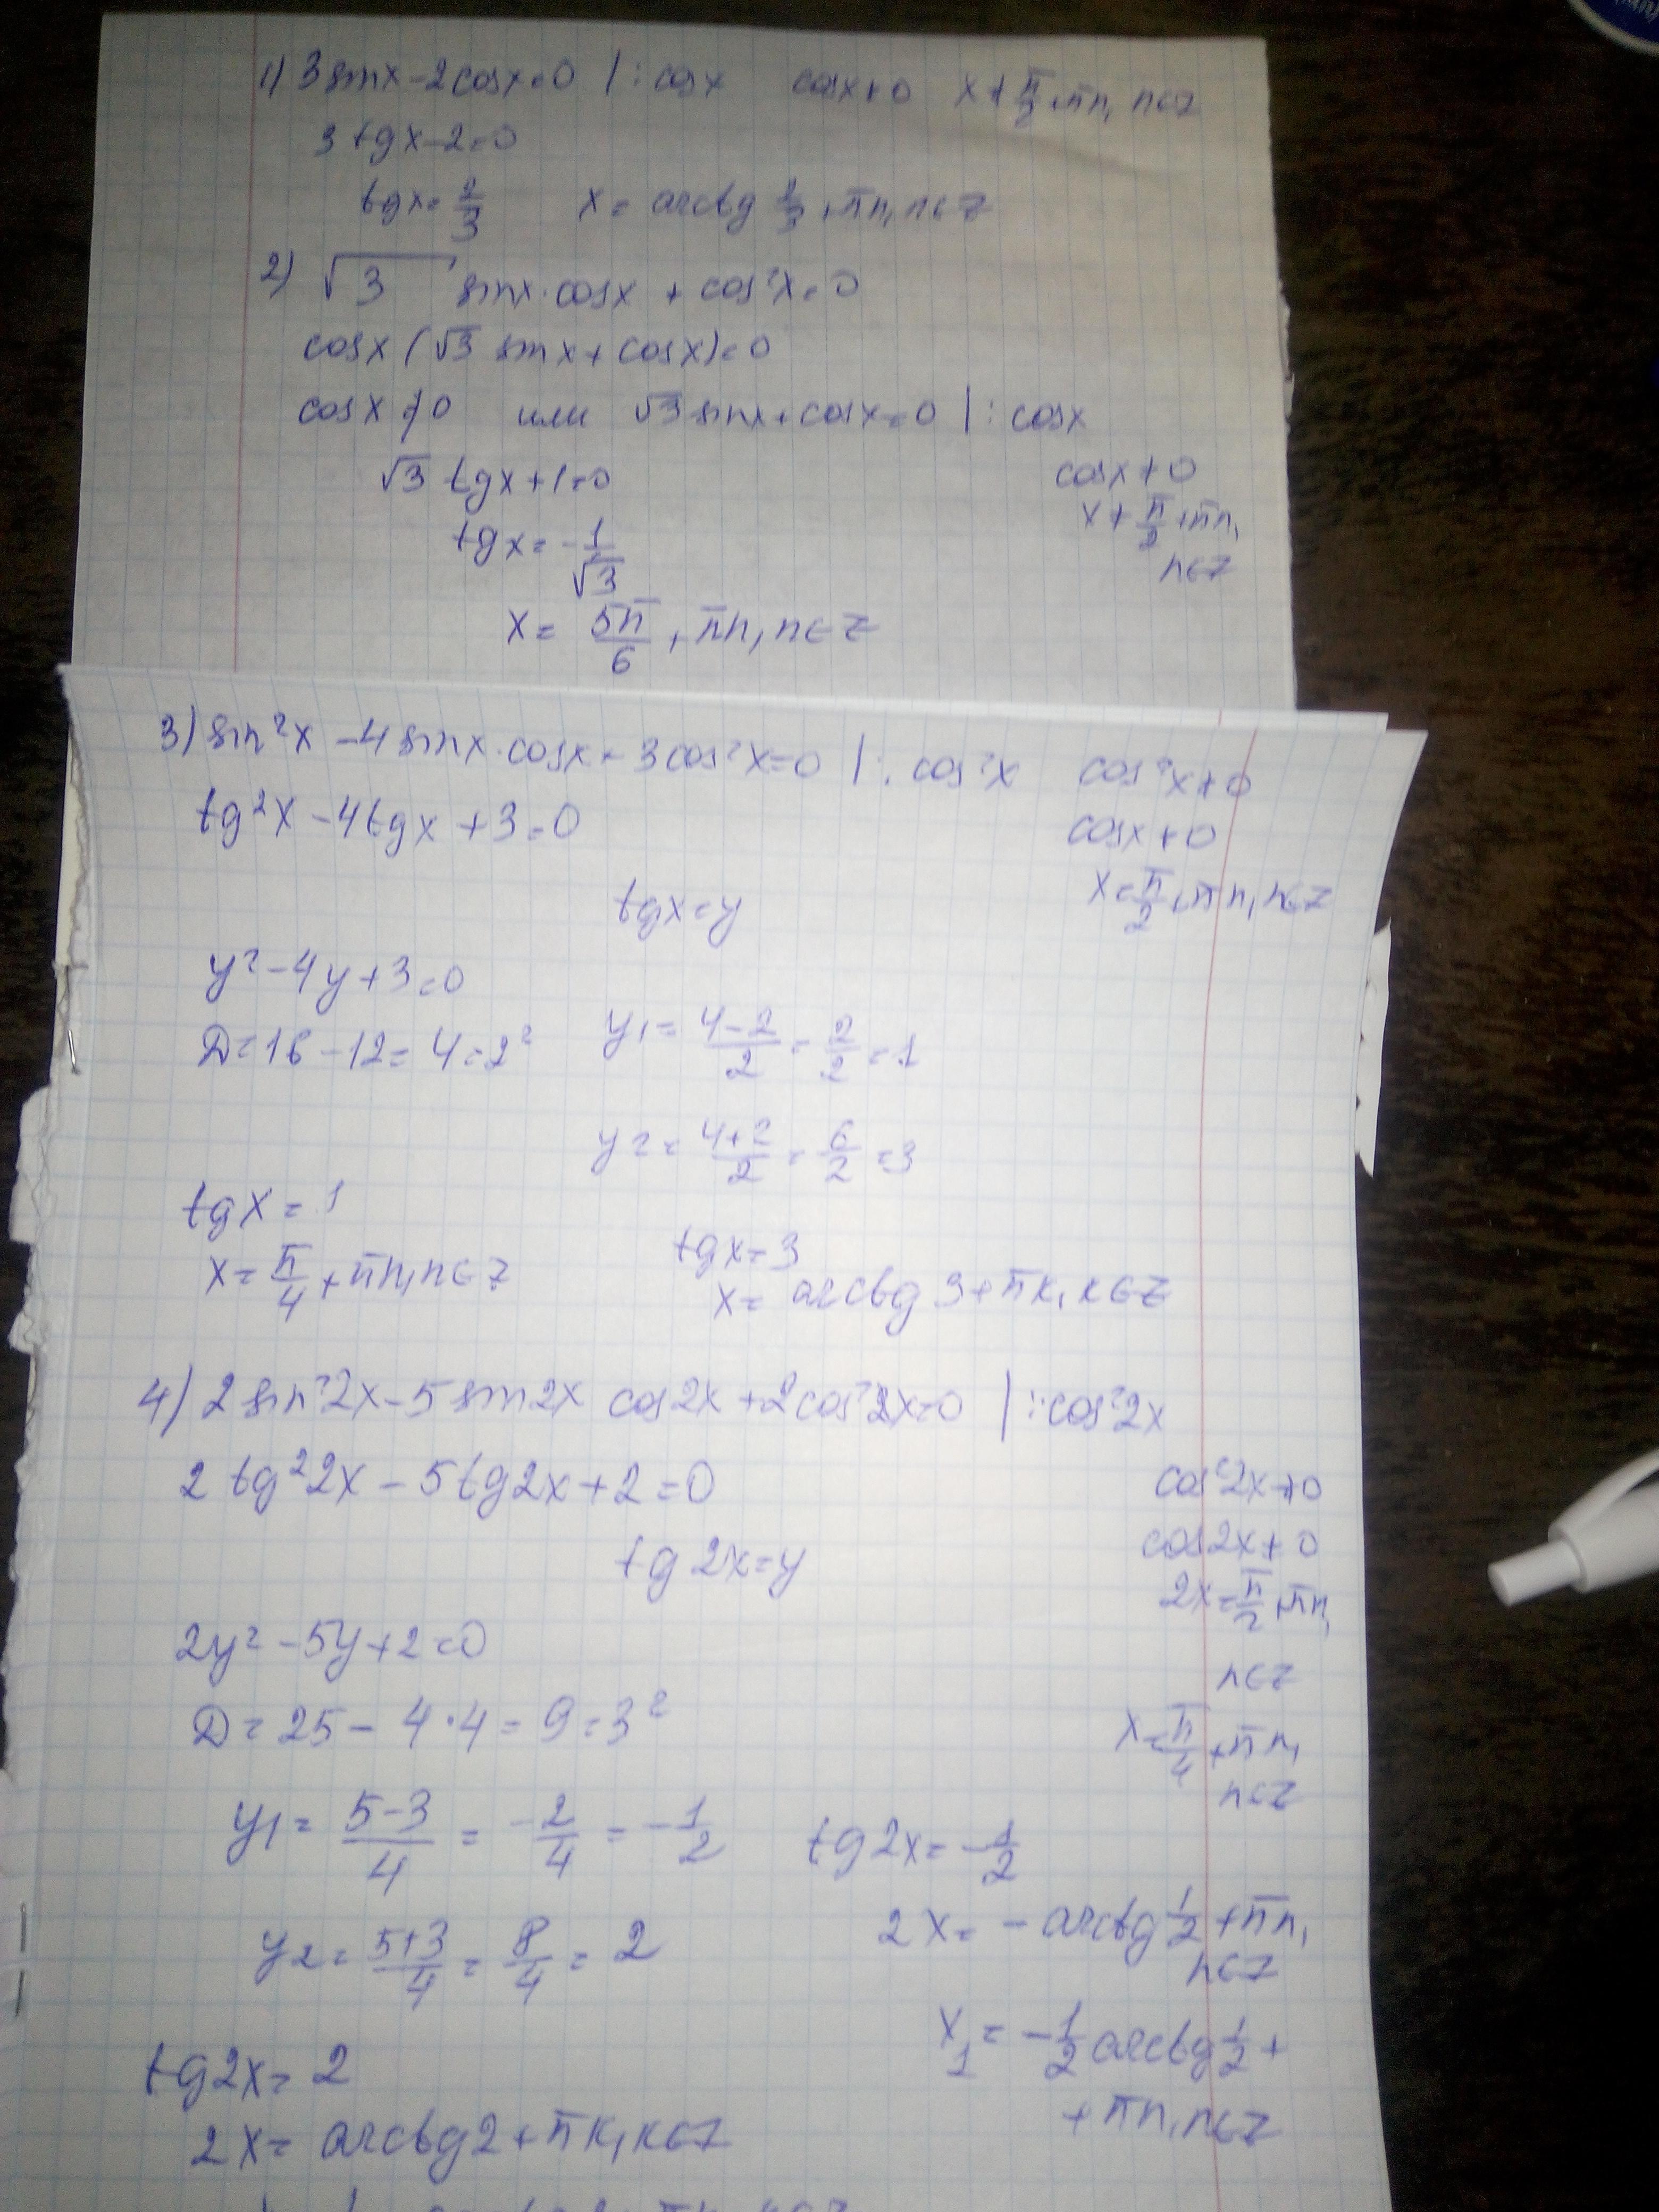 1) 3 sin x - 2 cos x = 0 | : cos x cos x ≠ 0 x ≠ π/2 + πn, n ∈ Z
3 tg x - 2 = 0
tg x = 2/3 x = arctg 2/3 + πn, n ∈ Z
2) √3 sin x · cos x + cos²x = 0
cos x (√3 sin x + cos x) = 0
cos x ≠ 0 или √3 sin x + cos x = 0 | : cos x
√3 tg x + 1 = 0 cos x ≠ 0
tg x = -1/√3 x ≠ π/2 + πn,
n ∈ Z
x = 5π/6 + πn, n ∈ Z
3) sin²x - 4 sin x · cos x + 3 cos²x = 0 | : cos²x cos²x ≠ 0
tg²x - 4 tg x + 3 = 0 cos x ≠ 0
tg x = y x = π/2 + πn, n ∈ Z
y² - 4y + 3 = 0
D = 16 - 12 = 4 = 2² y1 = (4-2)/2 = 2/2 = 1
y2 = (4+2)/2 = 6/2 = 3
tg x = 1 tg x = 3
x = π/4 + πn, n ∈ Z x = arctg 3 + πk, k ∈ Z
4) 2 sin²2x - 5 sin 2x cos 2x + 2 cos²2x = 0 | : cos²2x
2 tg²2x - 5 tg 2x + 2 = 0 cos²2x ≠ 0
tg 2x = y cos 2x ≠ 0
2x = π/2 + πn,
2y² - 5y + 2 = 0 n ∈ Z
D = 25 - 4·4 = 9 = 3² x = π/4 + πn,
n ∈ Z
y1 = (5-3)/4 = -2/4 = -1/2 tg 2x = -1/2
y2 = (5+3)/4 = 8/4 = 2 2x = - arctg 1/2 + πn,
n ∈ Z
x1 = -1/2 arctg 1/2 +
+ πn, n ∈ Z
tg 2x = 2
2x = arctg 2 + πk, k ∈ Z